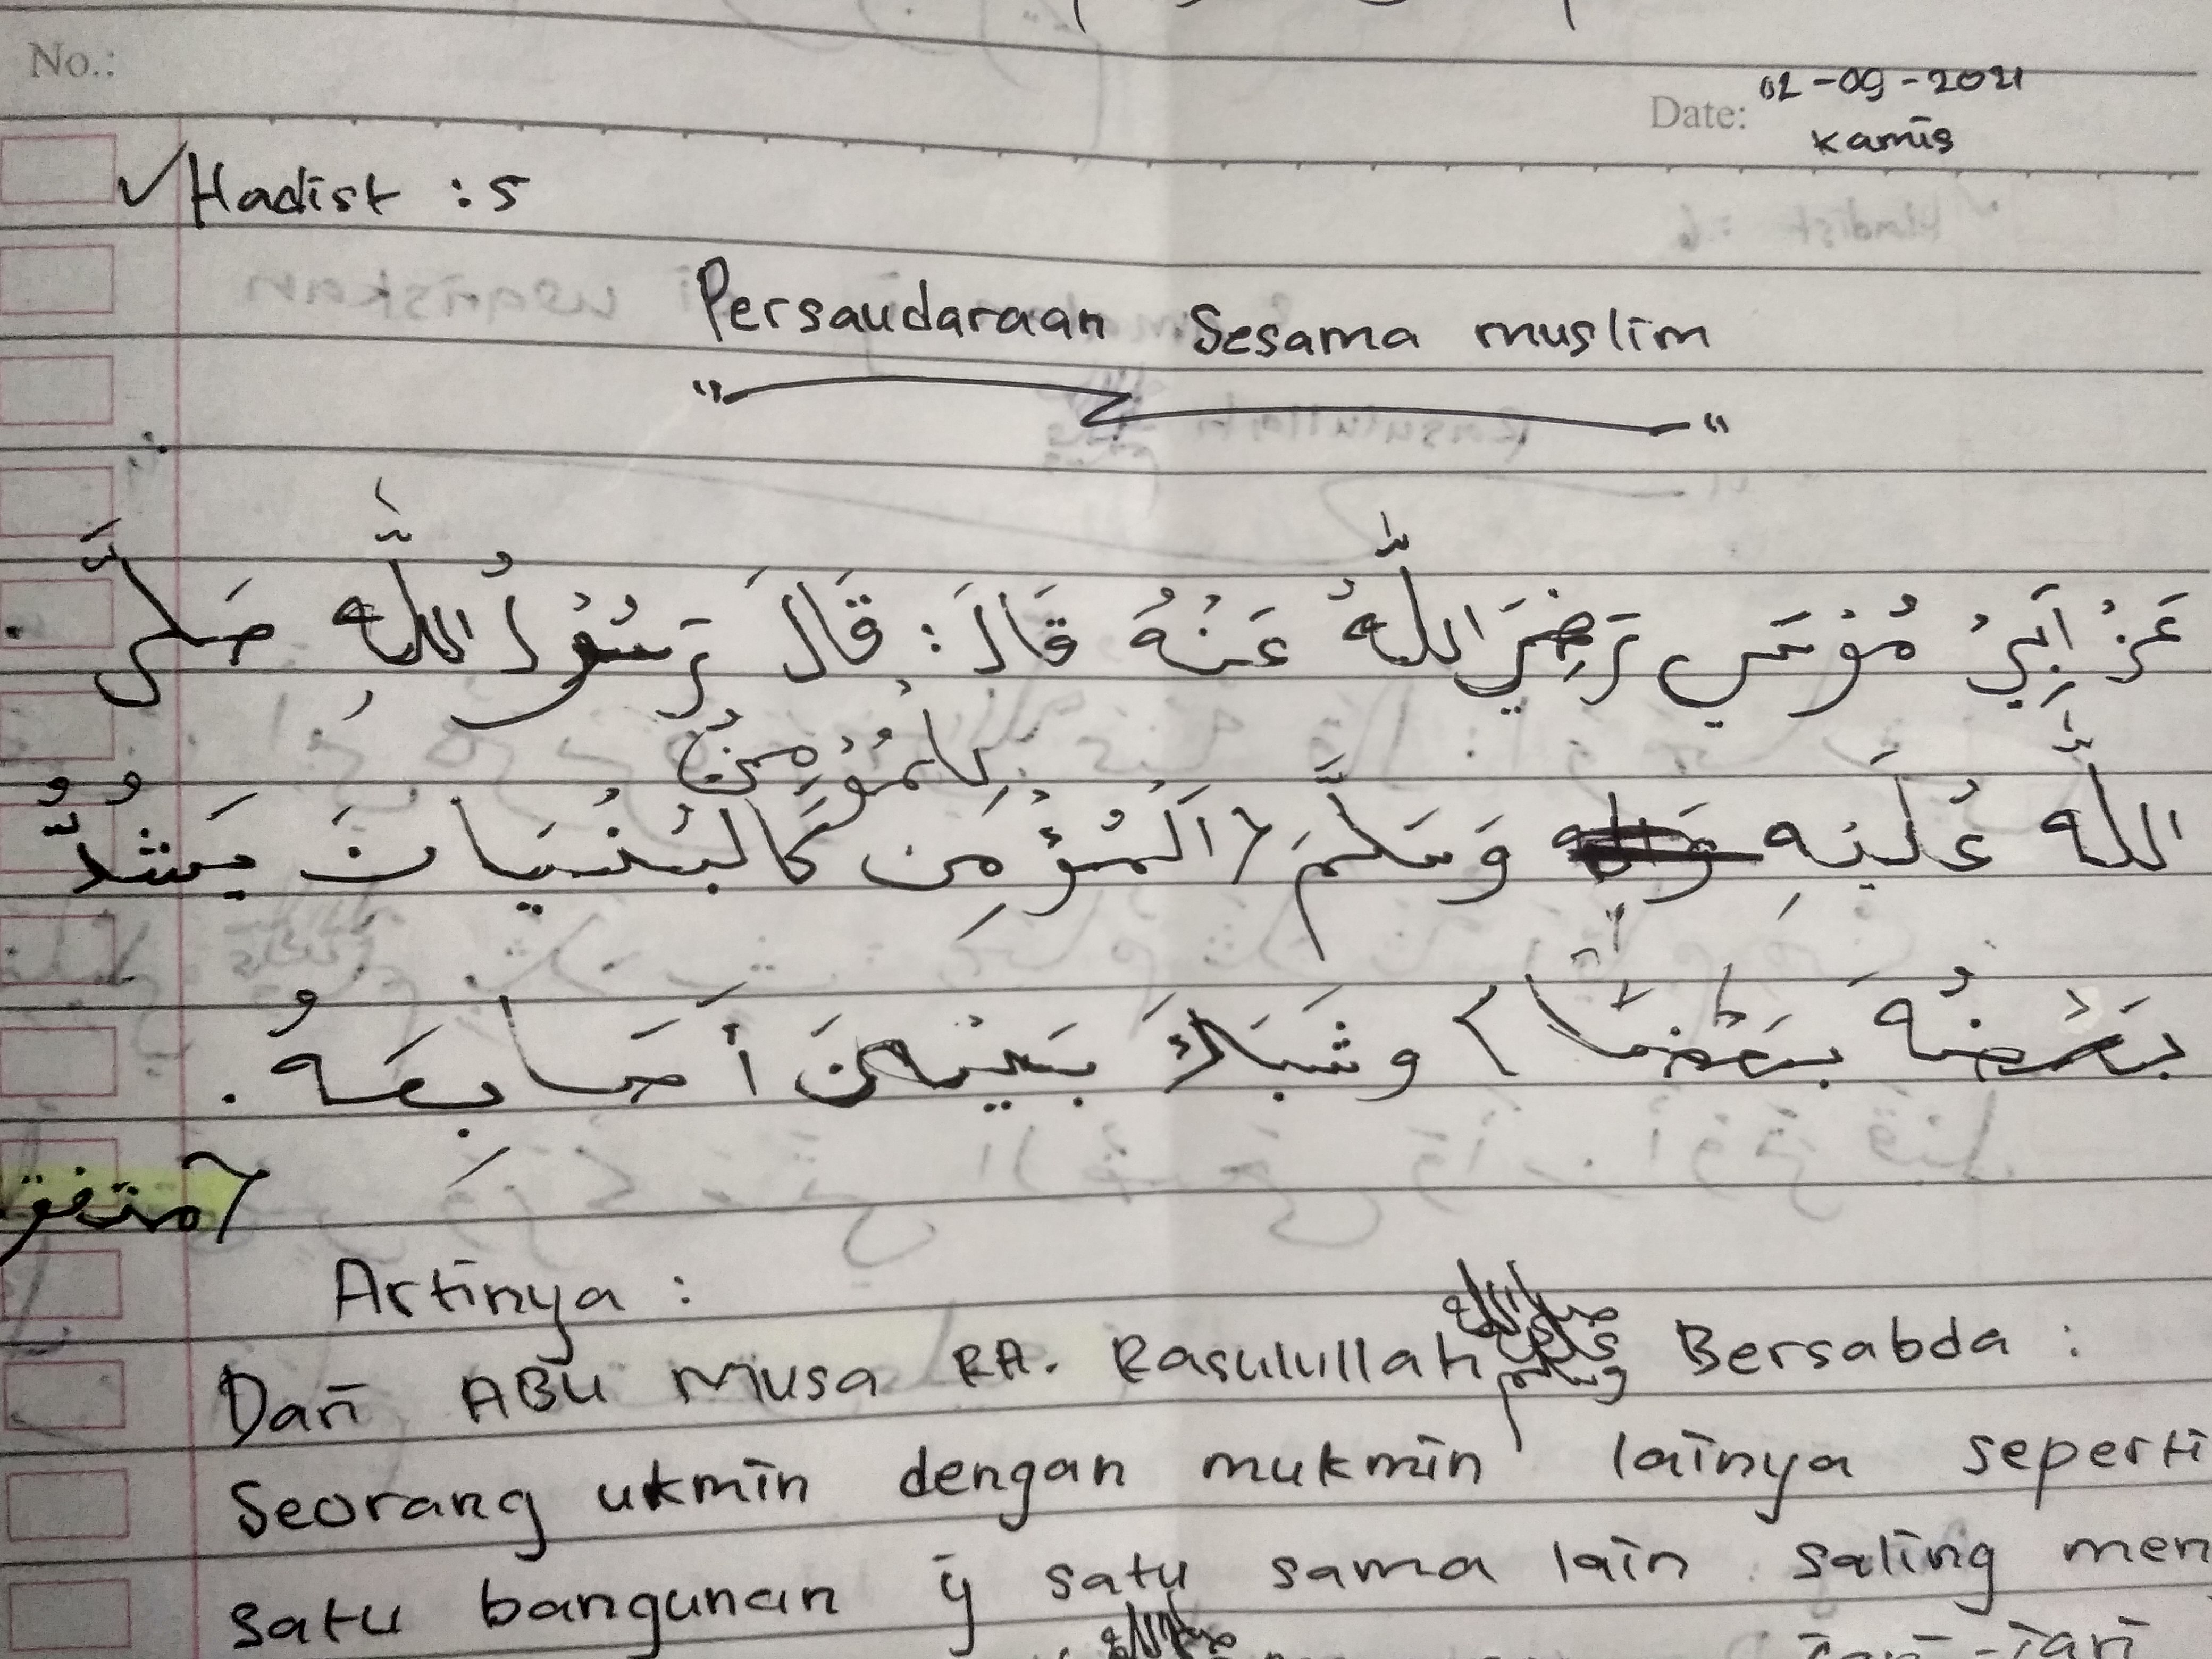 No.:
Date: 02-09-2021
Kamis
Hadist : 5
Persaudaraan Sesama muslim
عَنْ أَبِيْ مُوْسَى رَضِيَ اللّٰهُ عَنْهُ قَالَ : قَالَ رَسُوْلُ اللّٰهِ صَلَّى
لِلْمُؤْمِنُ
اللّٰه عَلَيْهِ وَسَلَّمَ ( اَلْمُؤْمِن كَالبُنْيَانَ يَشُدُّ
بَعْضُهُ بَعْضًا ) وشَبَكَ بَيْنَ أَصَابِعَهُ .
(متفق
Artinya :
Dari ABU Musa RA. Rasulullah صلى الله عليه وسلم Bersabda :
Seorang ukmin dengan mukmin lainya seperti
satu bangunan ÿ satu sama lain saling men
jari-jari